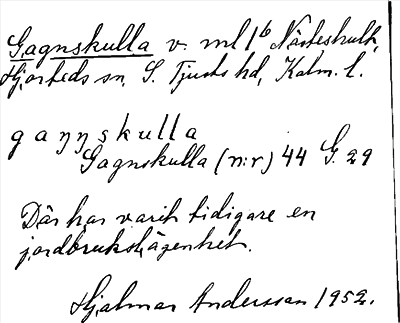 Gagnskulla v. ml 1b Näcteshult,
Hjorteds sn, S. Tjusts hd, Kalm. l.
gaŋŋskulla
Gagnskulla (n:r) 44 G. 29
Där har varit tidigare en
jordbrukslägenhet.
Hjalmar Andersson 1952.